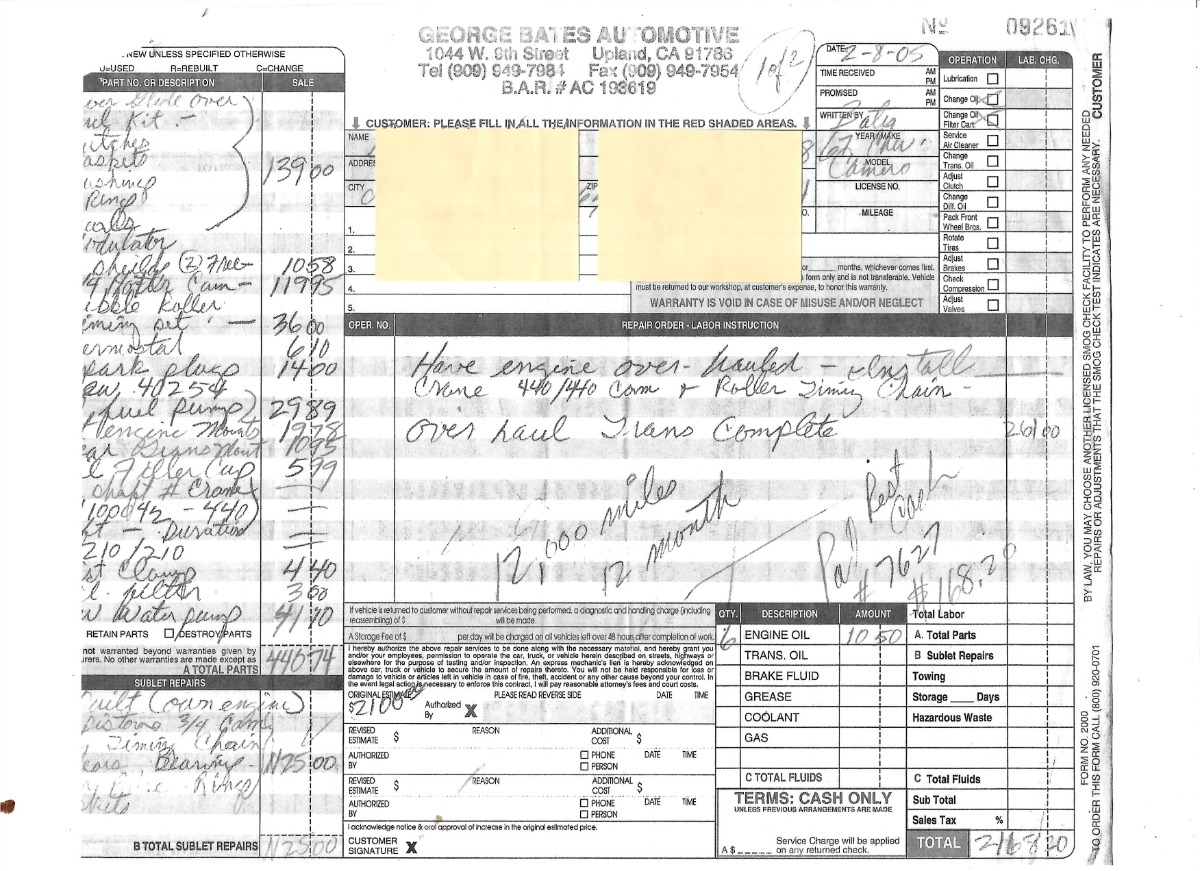 GEORGE BATES AUTOMOTIVE
1044 W. 9th Street Upland, CA 91786
Tel (909) 949-7984 Fax (909) 949-7954
B.A.R. # AC 193619
1 of 2
Nº 09261
NEW UNLESS SPECIFIED OTHERWISE
U=USED R=REBUILT C=CHANGE
PART NO. OR DESCRIPTION SALE
Glide over
Kit -
139 00
Rings
shields (2) Free- 10 58
Cam- 119 95
Roller
set - 36 00
6 10
park plugs 14 00
40254
fuel pump) 29 89
engine Mounts 19 78
Trans Mount 10 95
Filler Cap 5 99
shaft # Crane
110042 - 440)
- Duration
210/210
Clamp 4 40
3 00
Water pump 41 10
RETAIN PARTS DESTROY PARTS
not warranted beyond warranties given by
urers. No other warranties are made except as
A TOTAL PARTS 446 74
SUBLET REPAIRS
uilt (cam engine)
3/4 Cam
, Timing Chain
Bearing- 1125 00
Rings
B TOTAL SUBLET REPAIRS 1125 00
CUSTOMER: PLEASE FILL IN ALL THE INFORMATION IN THE RED SHADED AREAS.
NAME
ADDRE
CITY
ZIP
1.
2.
3.
4.
5.
DATE 2-8-05
TIME RECEIVED AM PM
PROMISED AM PM
WRITTEN BY
YEAR/MAKE
MODEL Camero
LICENSE NO.
MILEAGE
months, whichever comes first.
form only and is not transferable. Vehicle
must be returned to our workshop, at customer's expense, to honor this warranty.
WARRANTY IS VOID IN CASE OF MISUSE AND/OR NEGLECT
OPERATION LAB. CHG.
Lubrication
Change Oil
Change Oil Filter Cart.
Service Air Cleaner
Change Trans. Oil
Adjust Clutch
Change Diff. Oil
Pack Front Wheel Brgs.
Rotate Tires
Adjust Brakes
Check Compression
Adjust Valves
OPER. NO. REPAIR ORDER - LABOR INSTRUCTION
Have engine over-hauled - Install
Crane 440/440 Cam & Roller Timing Chain -
Over haul Trans Complete 261 00
12,000 miles
12 month
Rest Cash
# 7627
$ 168.20
If vehicle is returned to customer without repair services being performed, a diagnostic and handling charge (including
reassembling) of $ will be made.
A Storage Fee of $ per day will be charged on all vehicles left over 48 hours after completion of work.
I hereby authorize the above repair services to be done along with the necessary material, and hereby grant you
and/or your employees, permission to operate the car, truck, or vehicle herein described on streets, highways or
elsewhere for the purpose of testing and/or inspection. An express mechanic's lien is hereby acknowledged
on above car, truck or vehicle to secure the amount of repairs thereto. You will not be held responsible for loss or
damage to vehicle or articles left in vehicle in case of fire, theft, accident or any other cause beyond your control. In
the event legal action is necessary to enforce this contract, I will pay reasonable attorney's fees and court costs.
ORIGINAL ESTIMATE $2100 00 PLEASE READ REVERSE SIDE DATE TIME
Authorized By X
REVISED ESTIMATE $ REASON ADDITIONAL COST $
AUTHORIZED BY PHONE PERSON DATE TIME
REVISED ESTIMATE $ REASON ADDITIONAL COST $
AUTHORIZED BY PHONE PERSON DATE TIME
I acknowledge notice & oral approval of increase in the original estimated price.
CUSTOMER SIGNATURE X
QTY. DESCRIPTION AMOUNT
6 ENGINE OIL 10 50
TRANS. OIL
BRAKE FLUID
GREASE
COOLANT
GAS
C TOTAL FLUIDS
TERMS: CASH ONLY
UNLESS PREVIOUS ARRANGEMENTS ARE MADE
Service Charge will be applied
A $ on any returned check.
Total Labor
A. Total Parts
B Sublet Repairs
Towing
Storage Days
Hazardous Waste
C Total Fluids
Sub Total
Sales Tax %
TOTAL 2168 20
BY LAW, YOU MAY CHOOSE ANOTHER LICENSED SMOG CHECK FACILITY TO PERFORM ANY NEEDED
REPAIRS OR ADJUSTMENTS THAT THE SMOG CHECK TEST INDICATES ARE NECESSARY. CUSTOMER
FORM NO. 2000
TO ORDER THIS FORM CALL (800) 920-0701